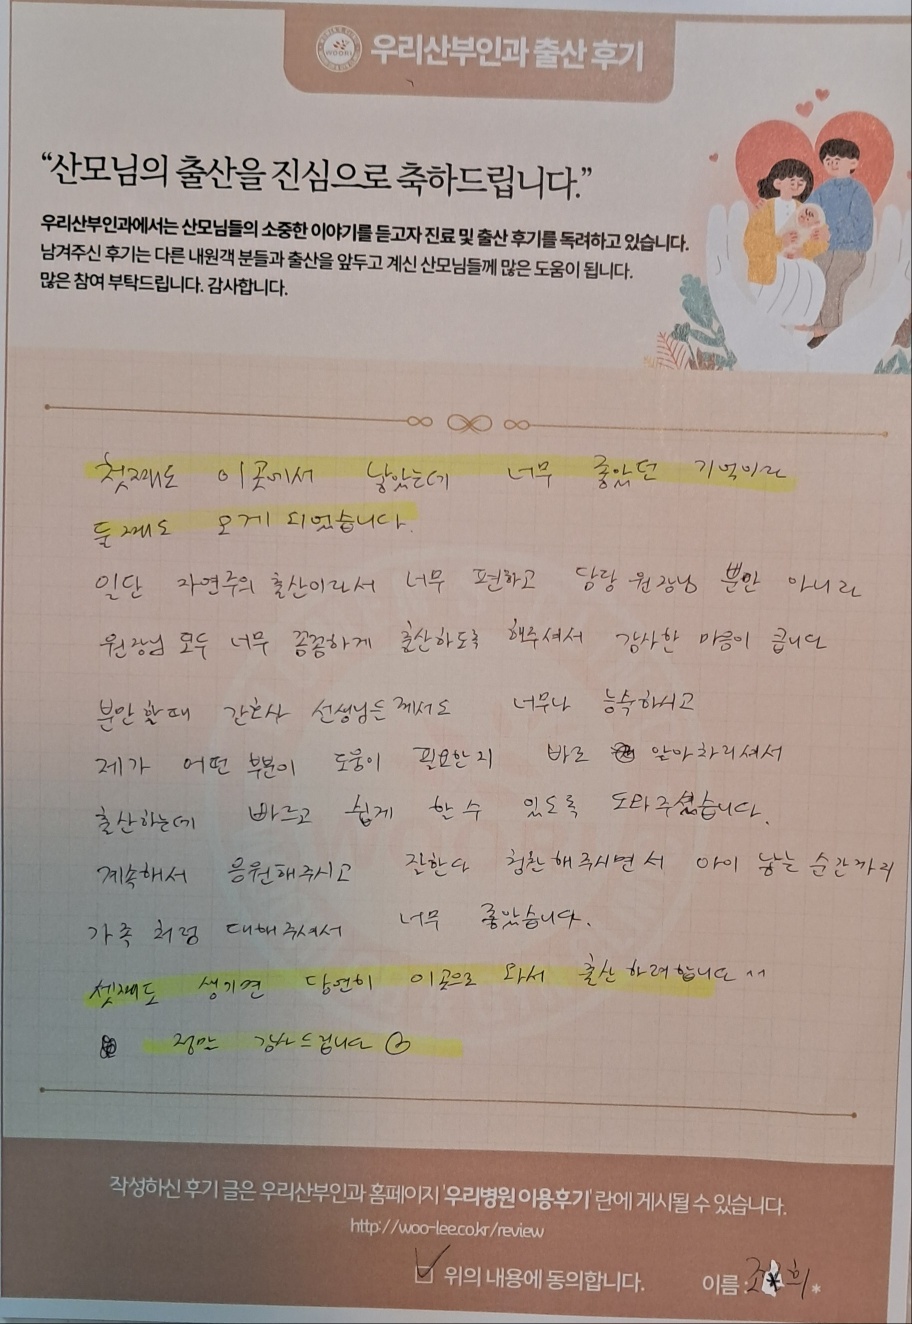 우리산부인과 출산 후기
“산모님의 출산을 진심으로 축하드립니다.”
우리산부인과에서는 산모님들의 소중한 이야기를 듣고자 진료 및 출산 후기를 독려하고 있습니다.
남겨주신 후기는 다른 내원객 분들과 출산을 앞두고 계신 산모님들께 많은 도움이 됩니다.
많은 참여 부탁드립니다. 감사합니다.
첫째도 이곳에서 낳았는데 너무 좋았던 기억이라
둘째도 오게 되었습니다.
일단 자연주의 출산이라서 너무 편하고 담당 원장님 뿐만 아니라
원장님 모두 너무 꼼꼼하게 출산하도록 해주셔서 감사한 마음이 큽니다
분만할때 간호사 선생님들께서도 너무나 능숙하시고
제가 어떤 부분이 도움이 필요한지 바로 알아차리셔서
출산하는데 빠르고 쉽게 할 수 있도록 도와주셨습니다.
계속해서 응원해주시고 잘한다 칭찬해주시면서 아이 낳는 순간까지
가족 처럼 대해주셔서 너무 좋았습니다.
셋째도 생기면 당연히 이곳으로 와서 출산하려합니다 ^^
정말 감사드립니다
작성하신 후기 글은 우리산부인과 홈페이지 '우리병원 이용후기' 란에 게시될 수 있습니다.
http://woo-lee.co.kr/review
위의 내용에 동의합니다. 이름 : 조*희 *